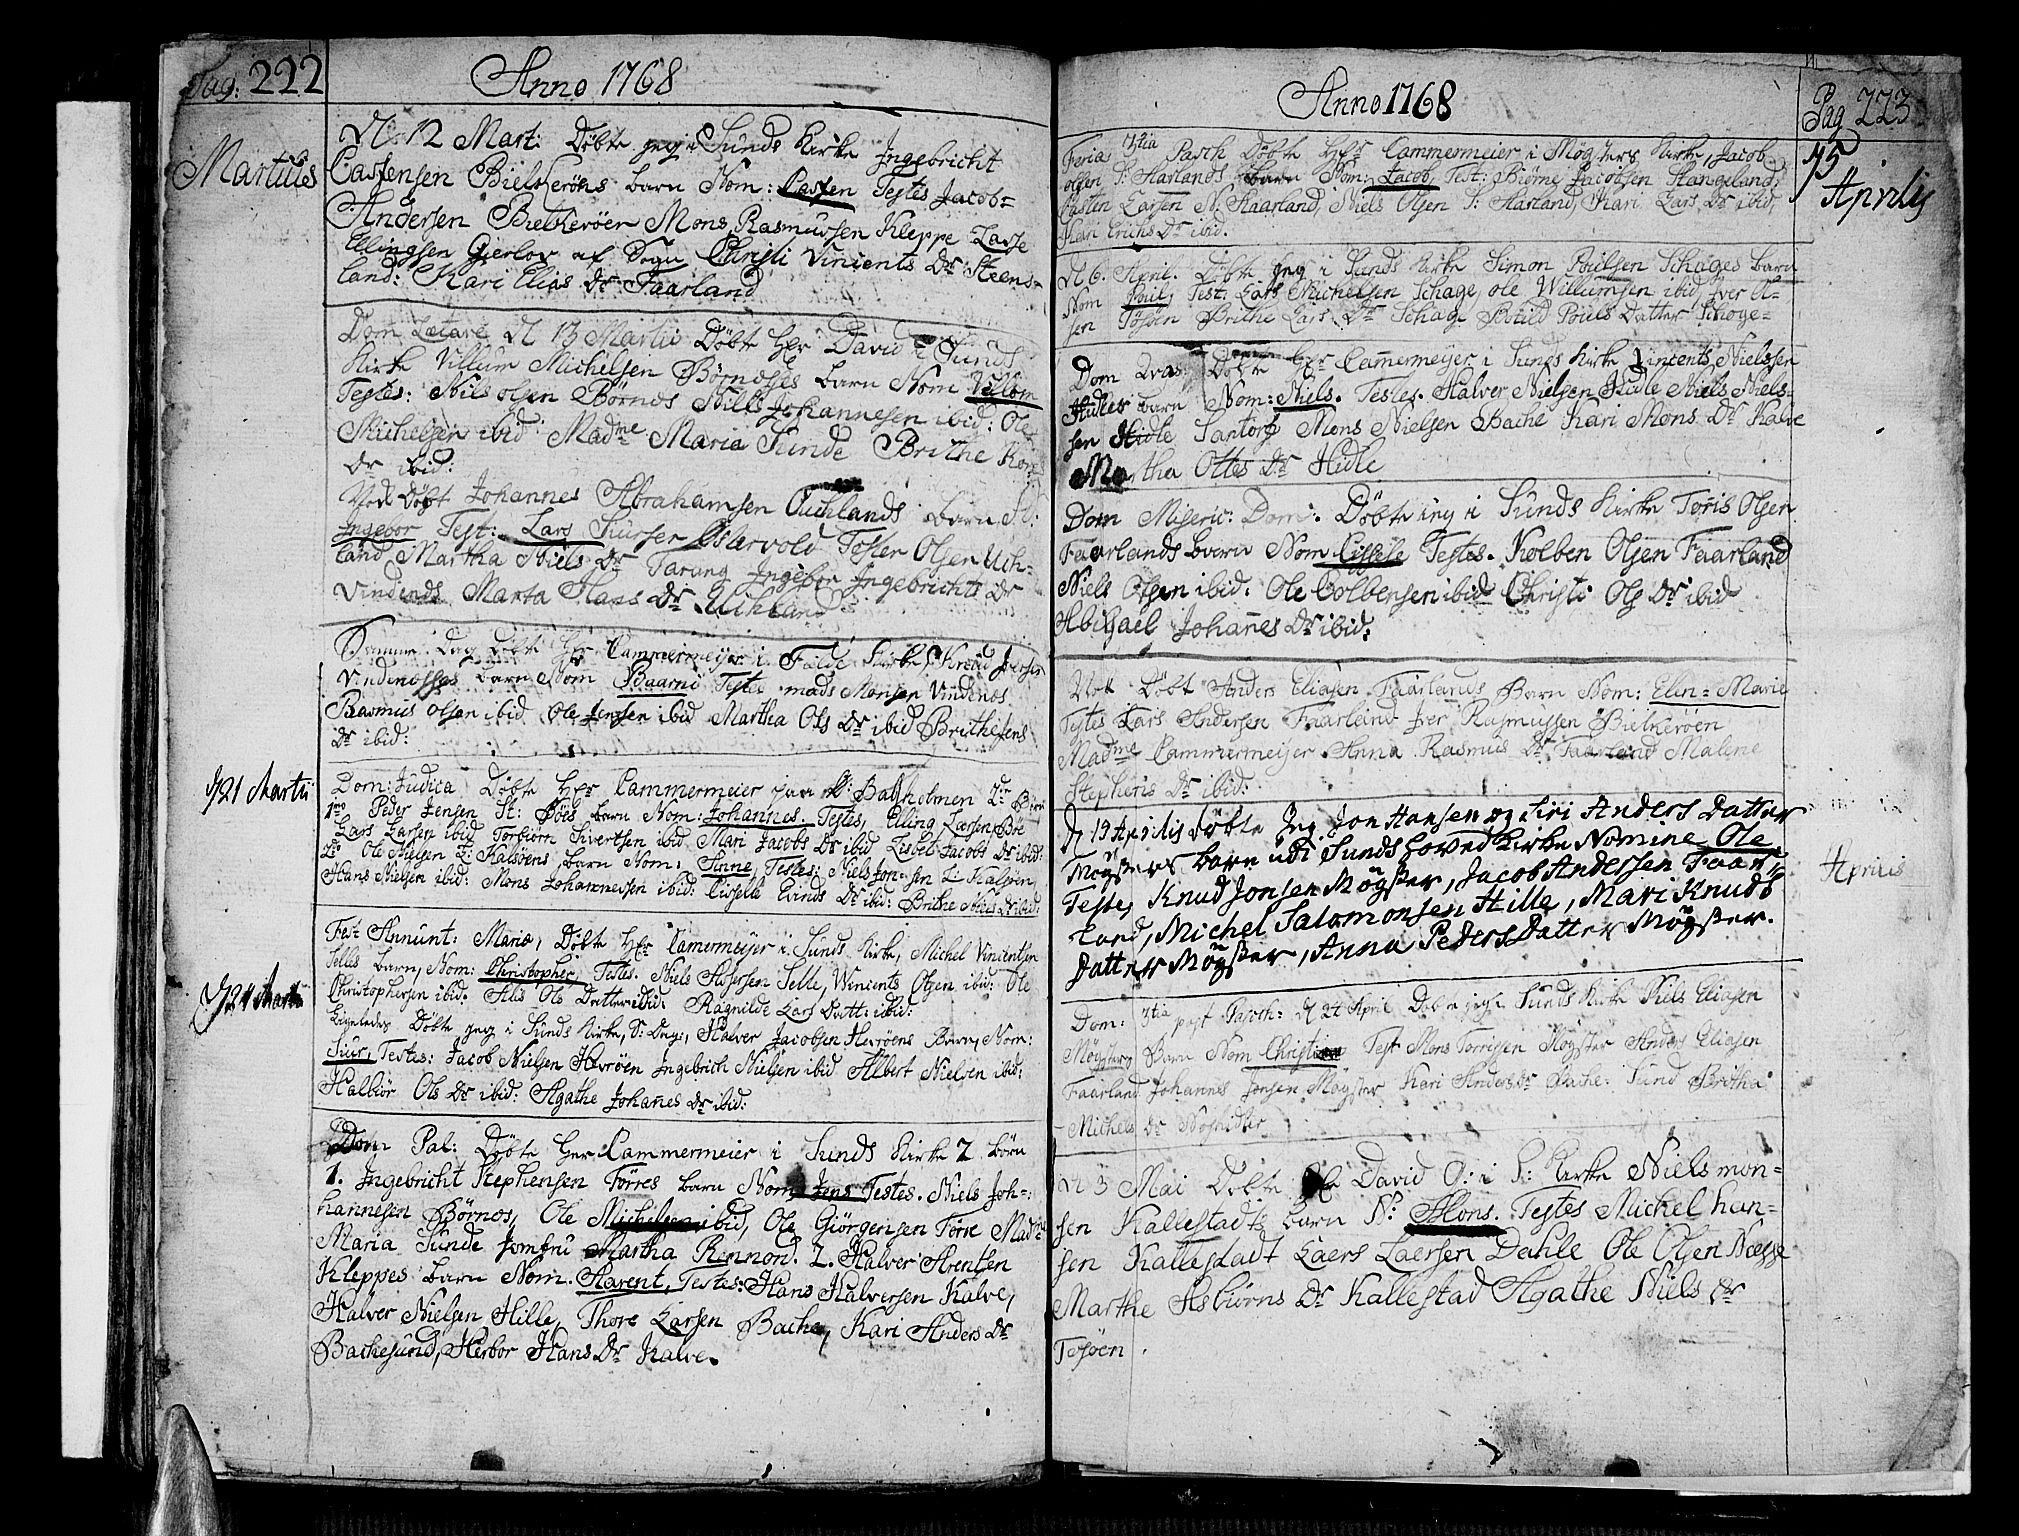 Pag: 222
Anno 1768
Martius
N 12 Mart: Döbte jeg i Sunds Kirke Ingebricht
Castensen Bielkeröns barn Nom: Casten Testes Jacob
Andersen Bielkeröer Mons Rasmussen Kleppe Lasse
Ellingsen Gierlov af Sogn Christi Vincents Dr Steens-
land: Kari Elias Dr Faarland
Dom Lætare N 13 Martii Döbte Hr David i Sunds
Kirke Villum Michelsen Börnæsses barn Nom Villom
Testes: Niels olsen Börnæs Niels Johannesen ibid: Ole
Michelsen ibid Madme Maria Sunde Brithe
Dr ibid:
Nok Döbt Johannes Abrahamsen Öuchlands barn
Ingebor Test: Lars Siurser Östervold Toster Olsen Uch-
land Martha Niels Dr Tarang Ingebor Ingebrichts Dr
Vindends Marta Hans Dr Uchland
Samme Dag Döbte Hr Cammermeyer i Kirke Knud Iversen
Vindenæsses barn Nom Baarni Testes mads Monsen Vindenes
Rasmus olsen ibid Ole Jensen ibid Martha Ols Dr ibid Brithe Jens
Dr ibid:
21 Martii
Dom: Judica Döbte Hr Cammermeier paa Bakholmen 2de Börn
1mo Peder Jensen St: Böes barn Nom: Johannes. Testes, Elling Larsen Bre
Lars Larsen ibid Torbiörn Sivertsen ibid Mari Jacobs Dr ibid Lisbet Jacobs Dr ibid:
2. Ole Nielsen L: Kalsöens barn Nom: Sinne, Testes: Niels Jonsen L: Kalsöen,
Hans Nielsen ibid: Mons Johannessen ibid: Cissele Evinds Dr ibid: Brithe Niels Dr ibid:
24 Martii
Fest Annunt: Mariæ, Döbte Hr Camermeijer i Sunds Kirke, Michel Vincentsen
Telles barn, Nom: Christopher, Testes. Niels Telle, Wincents Olsen ibid: Ole
Christophersen ibid. Ols Datter ibid: Ragnilde Lars Datt: ibid:
Ligeledes Döbte jeg i Sunds Kirke, D: Dag:, Halver Jacobsen Hevröens Barn, Nom:
Siur, Testes: Jacob Nielsen Hevröen Ingebrich Nielsen ibid Albert Nielsen ibid:
Halbiör Ols Dr ibid: Agathe Johanes Dr ibid:
Dom Pal: Döbte Her Cammermeier i Sunds Kirke 2 börn
1. Ingebricht Stephensen Törres barn Nom Jens Testes. Niels Joh-
hannesen Börnæs, Ole Michelsen ibid, Ole Giörgensen Törre Madme
Maria Sunde Jomfru Martha Rennord. 2. Halver Arentsen
Kleppes barn Nom. Aarent, Testes: Hans Halversen Kalve,
Halver Nielsen Hille, Thore Larsen Bache, Kari Anders Dr
Bachesund, Herbor Hans Dr Kalve.
Anno 1768
Pag 223
5 Aprilis
Feria 3tia Pasch Döbte Hr Cammermeier i Møgsters Kirke, Jacob
olsen S: Harlands barn Nom: Jacob, Test: Biörne Jacobsen Stangeland,
Casten Larsen N. Haarland, Niels Olsen S: Harland, Kari Lars Dr ibid,
Kari Erichs Dr ibid.
N 6. April. Döbte jeg i Sunds Kirke Simon Poulsen Schages barn
Nom Poul, Test: Lars Michelsen Schage, ole Willumsen ibid Iver
sen Tösöen Brithe Lars Dr Schag Botild Poels Datter Schoge-
Dom Qvas: Döbte Hr Cammermeyer i Sunds Kirke Vincents Nielssen
Hidles barn Nom: Niels. Testes. Halver Nielsen Hidle Niels Niels-
sen Hidle Santorf Mons Nielsen Bache Kari Mons Dr Kalve
Martha Ottes Dr Hidle
Dom Miseric: Dom: Döbte jeg i Sunds Kirke Toris Olsen
Faarlands barn Nom Cissele Testes. Kolben Olsen Faarland
Niels Olsen ibid: Ole Colbensen ibid Christi Ols Dr ibid
Abigael Johanes Dr ibid:
Nok Döbt Anders Eliasen Faarlands Barn Nom: Elin-Marie
Testes Lars Andersen Faarland Iver Rasmussen Bielkeröen
Madme Cammermeijer Anna Rasmus Dr Faarland Malene
Stepheris Dr ibid:
Aprilis
d 19 Aprilis Döbte Jeg Jon Hansen og Siri Anders Datter
Møgsters barn udi Sunds hoved Kirke Nomine Ole
Testes, Knud Jonsen Møgster, Jacob Andersen Faar-
land, Michel Salomonsen Hille, Mari Knuds
Datter Møgster, Anna Peders Datter Møgster.
Dom: 3tia post Pasch: N 24 April Döbte jeg i Sunds Kirke Niels Eliasen
Møgsters Barn Nom Christi Test Mons Torrissen Møgster Anders Eliasen
Faarland Johannes Jensen Møgster Kari Anders Dr Bache: Sund Britha
Michels Dr
N 3 Mai Döbte David O: i S: Kirke Niels mon-
sen Kallestads barn N: Mons. Testes Mickel han-
sen Kallestadt Laers Laersen Dahle Ole Olsen Næsse
Marthe Asbiörns Dr Kallestad Agathe Niels Dr
Tösöen